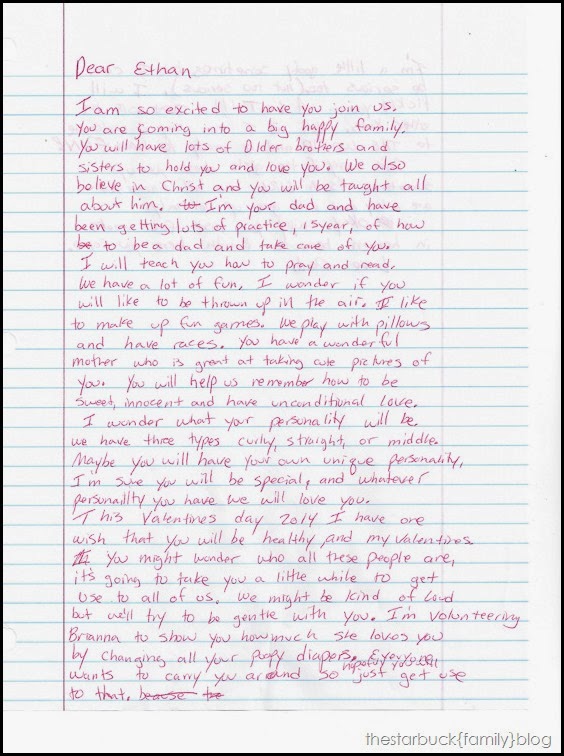 Dear Ethan
I am so excited to have you join us.
You are coming into a big happy family.
You will have lots of Older brothers and
sisters to hold you and love you. We also
believe in Christ and you will be taught all
about him. I'm your dad and have
been getting lots of practice, 15year, of how
to be a dad and take care of you.
I will teach you how to pray and read.
We have a lot of fun. I wonder if you
will like to be thrown up in the air. I like
to make up fun games. We play with pillows
and have races. You have a wonderful
mother who is great at taking cute pictures of
you. You will help us remember how to be
sweet, innocent and have unconditional love.
I wonder what your personality will be.
we have three types curly, straight, or middle.
Maybe you will have your own unique personality,
I'm sure you will be special, and whatever
personallty you have we will love you.
This Valentines day 2014 I have one
wish that you will be healthy, and my valentines.
You might wonder who all these people are,
it's going to take you a little while to get
use to all of us. We might be kind of loud
but we'll try to be gentle with you. I'm volunteering
Brianna to show you how much she loves you
by changing all your poopy diapers. Everyone
wants to carry you around so hopefully you will just get use
to that. because
thestarbuck{family}blog